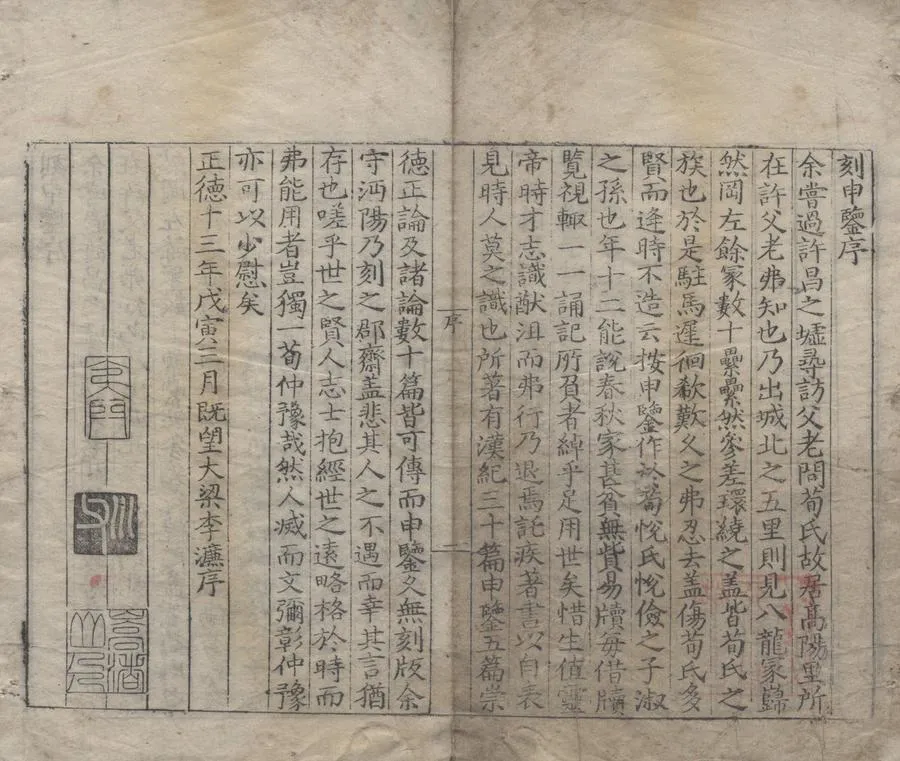 刻申鑒序
余嘗過許昌之墟尋訪父老問荀氏故居高陽里所
在許父老弗知也乃出城北之五里則見八龍冢巋
然岡左餘冢數十纍纍然參差環繞之盖皆荀氏之
族也於是駐馬遲徊欷歎久之弗忍去盖傷荀氏多
賢而逢時不造云按申鑒作於荀悅氏悅儉之子淑
之孫也年十二能說春秋家甚貧無貲易牘每借牘
覽視輙一一誦記所負者綽乎足用世矣惜生值靈
帝時才志識猷沮而弗行乃退焉託疾著書以自表
見時人莫之識也所著有漢紀三十篇申鑒五篇崇
序
德正論及諸論數十篇皆可傳而申鑒久無刻版余
守沔陽乃刻之郡齋盖悲其人之不遇而幸其言猶
存也嗟乎世之賢人志士抱經世之遠略格於時而
弗能用者豈獨一荀仲豫哉然人滅而文彌彰仲豫
亦可以少慰矣
正德十三年戊寅三月既望大梁李濂序